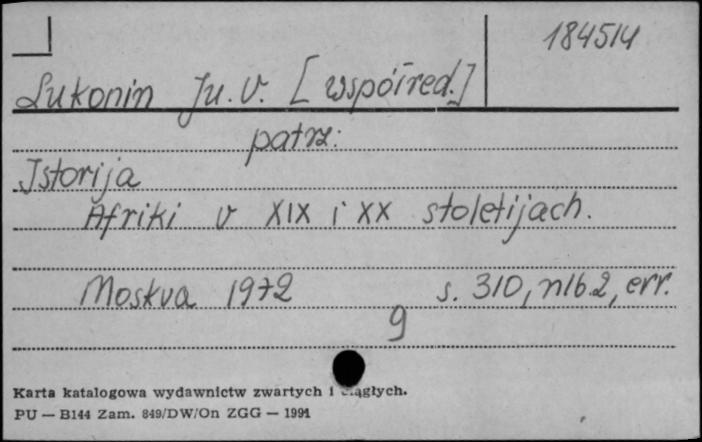 184514
Lukonin Ju. V. [współred.]
patrz:
Istorija
Afriki v XIX i XX stoletijach.
Moskva 1972 s. 310, nlb. 2, err.
9
Karta katalogowa wydawnictw zwartych i ciągłych.
PU — B144 Zam. 849/DW/On ZGG — 1991